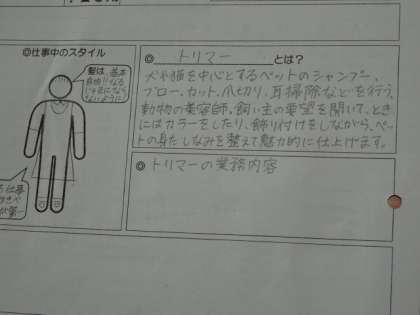 ◎仕事中のスタイル
髪は、基本
自由!!なる
じゃまになら
ないように
◎ トリマー とは?
犬や猫を中心とするペットのシャンプー、
ブロー、カット、爪切り、耳掃除などを行う、
動物の美容師。飼い主の要望を聞いて、とき
にはカラーをしたり、飾り付けをしながら、ペッ
トの身だしなみを整えて魅力的に仕上げます。
◎トリマーの業務内容
仕事